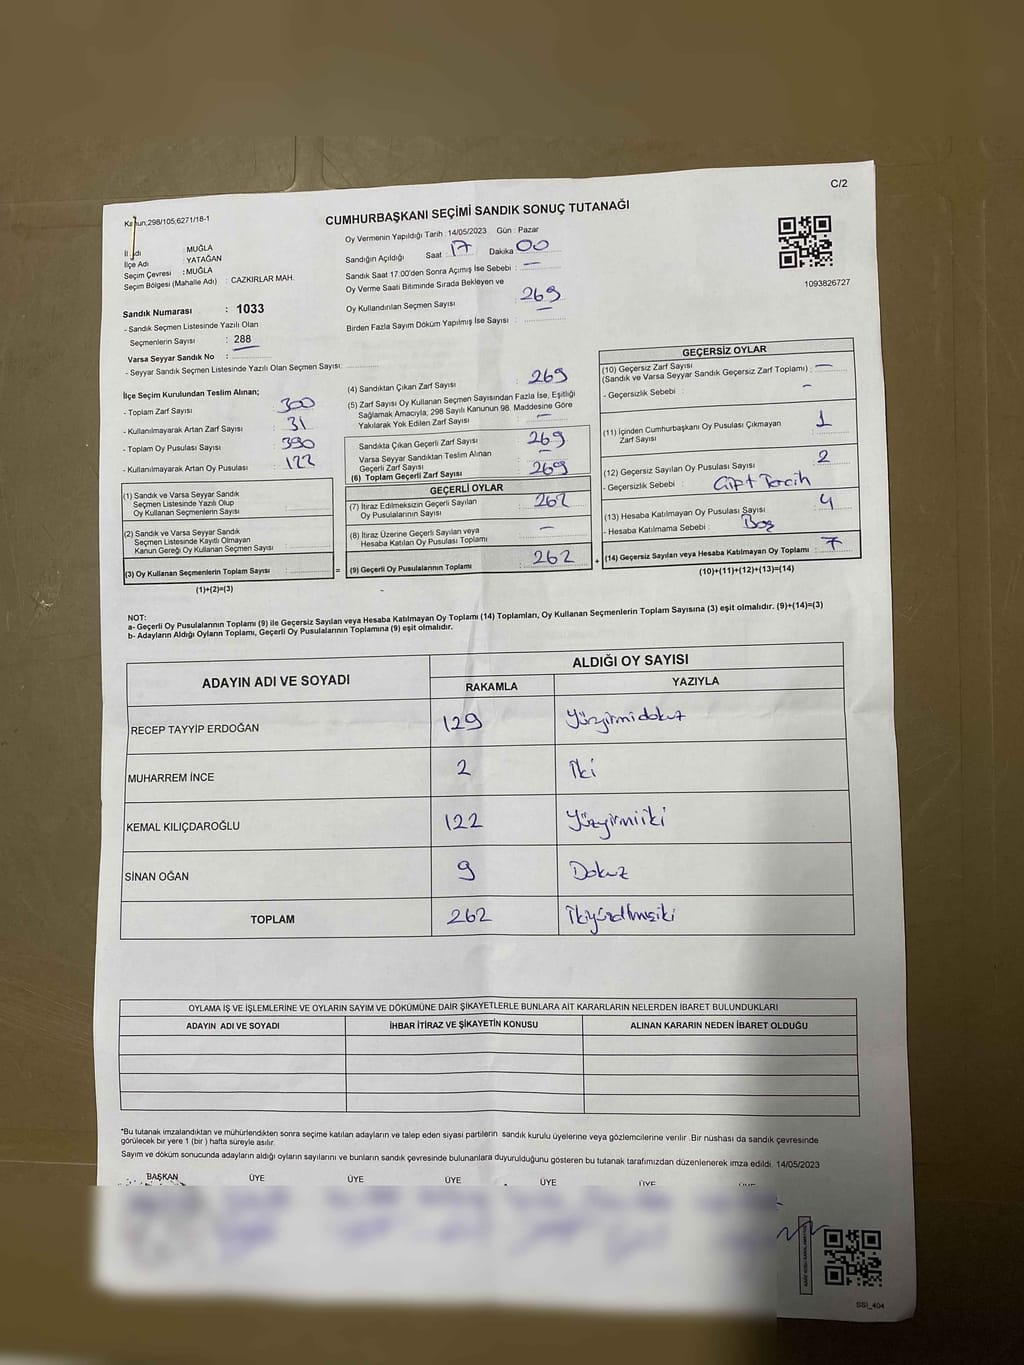 C/2
Kanun,298/105,6271/18-1
CUMHURBAŞKANI SEÇİMİ SANDIK SONUÇ TUTANAĞI
İl Adı : MUĞLA
İlçe Adı : YATAĞAN
Seçim Çevresi : MUĞLA
Seçim Bölgesi (Mahalle Adı) : CAZKIRLAR MAH.
Sandık Numarası : 1033
- Sandık Seçmen Listesinde Yazılı Olan
Seçmenlerin Sayısı : 288
Varsa Seyyar Sandık No :
- Seyyar Sandık Seçmen Listesinde Yazılı Olan Seçmen Sayısı:
Oy Vermenin Yapıldığı Tarih : 14/05/2023 Gün : Pazar
Sandığın Açıldığı Saat 17 Dakika 00
Sandık Saat 17:00'den Sonra Açımış İse Sebebi : —
Oy Verme Saati Bitiminde Sırada Bekleyen ve
Oy Kullandırılan Seçmen Sayısı : 269
Birden Fazla Sayım Döküm Yapılmış İse Sayısı :
1093826727
İlçe Seçim Kurulundan Teslim Alınan;
- Toplam Zarf Sayısı : 300
- Kullanılmayarak Artan Zarf Sayısı : 31
- Toplam Oy Pusulası Sayısı : 390
- Kullanılmayarak Artan Oy Pusulası : 122
(1) Sandık ve Varsa Seyyar Sandık
Seçmen Listesinde Yazılı Olup
Oy Kullanan Seçmenlerin Sayısı :
(2) Sandık ve Varsa Seyyar Sandık
Seçmen Listesinde Kayıtlı Olmayan
Kanun Gereği Oy Kullanan Seçmen Sayısı :
(3) Oy Kullanan Seçmenlerin Toplam Sayısı : =
(1)+(2)=(3)
(4) Sandıktan Çıkan Zarf Sayısı : 269
(5) Zarf Sayısı Oy Kullanan Seçmen Sayısından Fazla İse, Eşitliği
Sağlamak Amacıyla, 298 Sayılı Kanunun 98. Maddesine Göre
Yakılarak Yok Edilen Zarf Sayısı : —
Sandıkta Çıkan Geçerli Zarf Sayısı : 269
Varsa Seyyar Sandıktan Teslim Alınan
Geçerli Zarf Sayısı : —
(6) Toplam Geçerli Zarf Sayısı : 269
GEÇERLİ OYLAR
(7) İtiraz Edilmeksizin Geçerli Sayılan
Oy Pusulalarının Sayısı : 262
(8) İtiraz Üzerine Geçerli Sayılan veya
Hesaba Katılan Oy Pusulası Toplamı : —
(9) Geçerli Oy Pusulalarının Toplamı : 262 +
GEÇERSİZ OYLAR
(10) Geçersiz Zarf Sayısı
(Sandık ve Varsa Seyyar Sandık Geçersiz Zarf Toplamı) : —
- Geçersizlik Sebebi : —
(11) İçinden Cumhurbaşkanı Oy Pusulası Çıkmayan
Zarf Sayısı : 1
(12) Geçersiz Sayılan Oy Pusulası Sayısı : 2
- Geçersizlik Sebebi : Çift Tercih
(13) Hesaba Katılmayan Oy Pusulası Sayısı : 4
- Hesaba Katılmama Sebebi : Boş
(14) Geçersiz Sayılan veya Hesaba Katılmayan Oy Toplamı : 7
(10)+(11)+(12)+(13)=(14)
NOT:
a- Geçerli Oy Pusulalarının Toplamı (9) ile Geçersiz Sayılan veya Hesaba Katılmayan Oy Toplamı (14) Toplamları, Oy Kullanan Seçmenlerin Toplam Sayısına (3) eşit olmalıdır. (9)+(14)=(3)
b- Adayların Aldığı Oyların Toplamı, Geçerli Oy Pusulalarının Toplamına (9) eşit olmalıdır.
ADAYIN ADI VE SOYADI ALDIĞI OY SAYISI
RAKAMLA YAZIYLA
RECEP TAYYİP ERDOĞAN 129 Yüzyirmidokuz
MUHARREM İNCE 2 İki
KEMAL KILIÇDAROĞLU 122 Yüzyirmiiki
SİNAN OĞAN 9 Dokuz
TOPLAM 262 İkiyüzaltmışiki
OYLAMA İŞ VE İŞLEMLERİNE VE OYLARIN SAYIM VE DÖKÜMÜNE DAİR ŞİKAYETLERLE BUNLARA AİT KARARLARIN NELERDEN İBARET BULUNDUKLARI
ADAYIN ADI VE SOYADI İHBAR İTİRAZ VE ŞİKAYETİN KONUSU ALINAN KARARIN NEDEN İBARET OLDUĞU
*Bu tutanak imzalandıktan ve mühürlendikten sonra seçime katılan adayların ve talep eden siyasi partilerin sandık kurulu üyelerine veya gözlemcilerine verilir .Bir nüshası da sandık çevresinde
görülecek bir yere 1 (bir ) hafta süreyle asılır.
Sayım ve döküm sonucunda adayların aldığı oyların sayılarını ve bunların sandık çevresinde bulunanlara duyurulduğunu gösteren bu tutanak tarafımızdan düzenlenerek imza edildi. 14/05/2023
BAŞKAN ÜYE ÜYE ÜYE ÜYE ÜYE
SSI_404